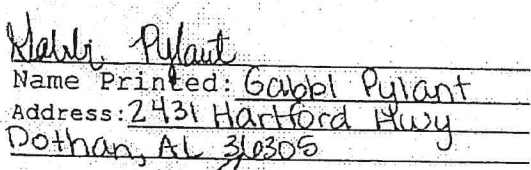 Gabbi Pylant
Name Printed: Gabbi Pylant
Address: 2431 Hartford Hwy
Dothan, AL 36305